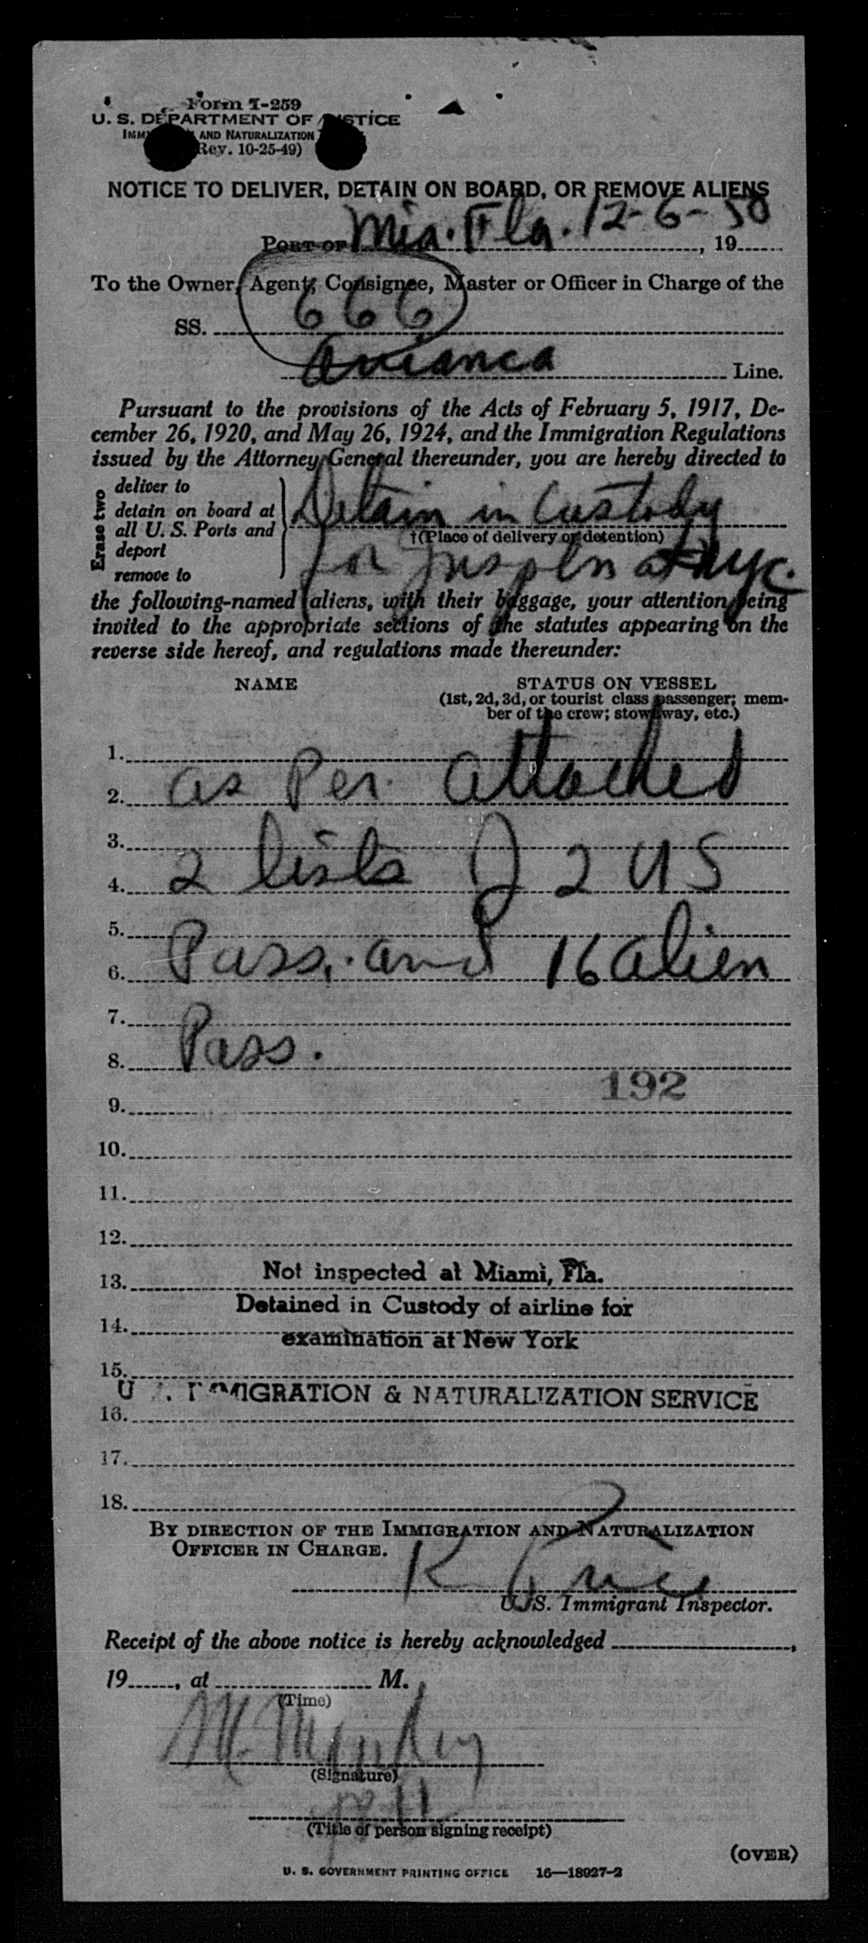 Form I-259
U. S. DEPARTMENT OF JUSTICE
AND NATURALIZATION
(Rev. 10-25-49)
NOTICE TO DELIVER, DETAIN ON BOARD, OR REMOVE ALIENS
PORT OF Mia. Fla. 12-6-50, 19
To the Owner, Agent, Consignee, Master or Officer in Charge of the
SS. 666
Avianca Line.
Pursuant to the provisions of the Acts of February 5, 1917, De-
cember 26, 1920, and May 26, 1924, and the Immigration Regulations
issued by the Attorney General thereunder, you are hereby directed to
Erase two
deliver to
detain on board at
all U. S. Ports and
deport
remove to
Detain in Custody
†(Place of delivery or detention)
for Inspln at NYC.
the following-named aliens, with their baggage, your attention being
invited to the appropriate sections of the statutes appearing on the
reverse side hereof, and regulations made thereunder:
NAME STATUS ON VESSEL
(1st, 2d, 3d, or tourist class passenger; mem-
ber of the crew; stowaway, etc.)
1.
2. as Per attached
3.
4. 2 lists of 2 US
5.
6. Pass. and 16 alien
7.
8. Pass.
192
9.
10.
11.
12.
Not inspected at Miami, Fla.
13.
Detained in Custody of airline for
14.
examination at New York
15.
U IMMIGRATION & NATURALIZATION SERVICE
16.
17.
18.
BY DIRECTION OF THE IMMIGRATION AND NATURALIZATION
OFFICER IN CHARGE.
K Price
U. S. Immigrant Inspector.
Receipt of the above notice is hereby acknowledged,
19, at M.
(Time)
(Signature)
(Title of person signing receipt)
(OVER)
U. S. GOVERNMENT PRINTING OFFICE 16—18027-2